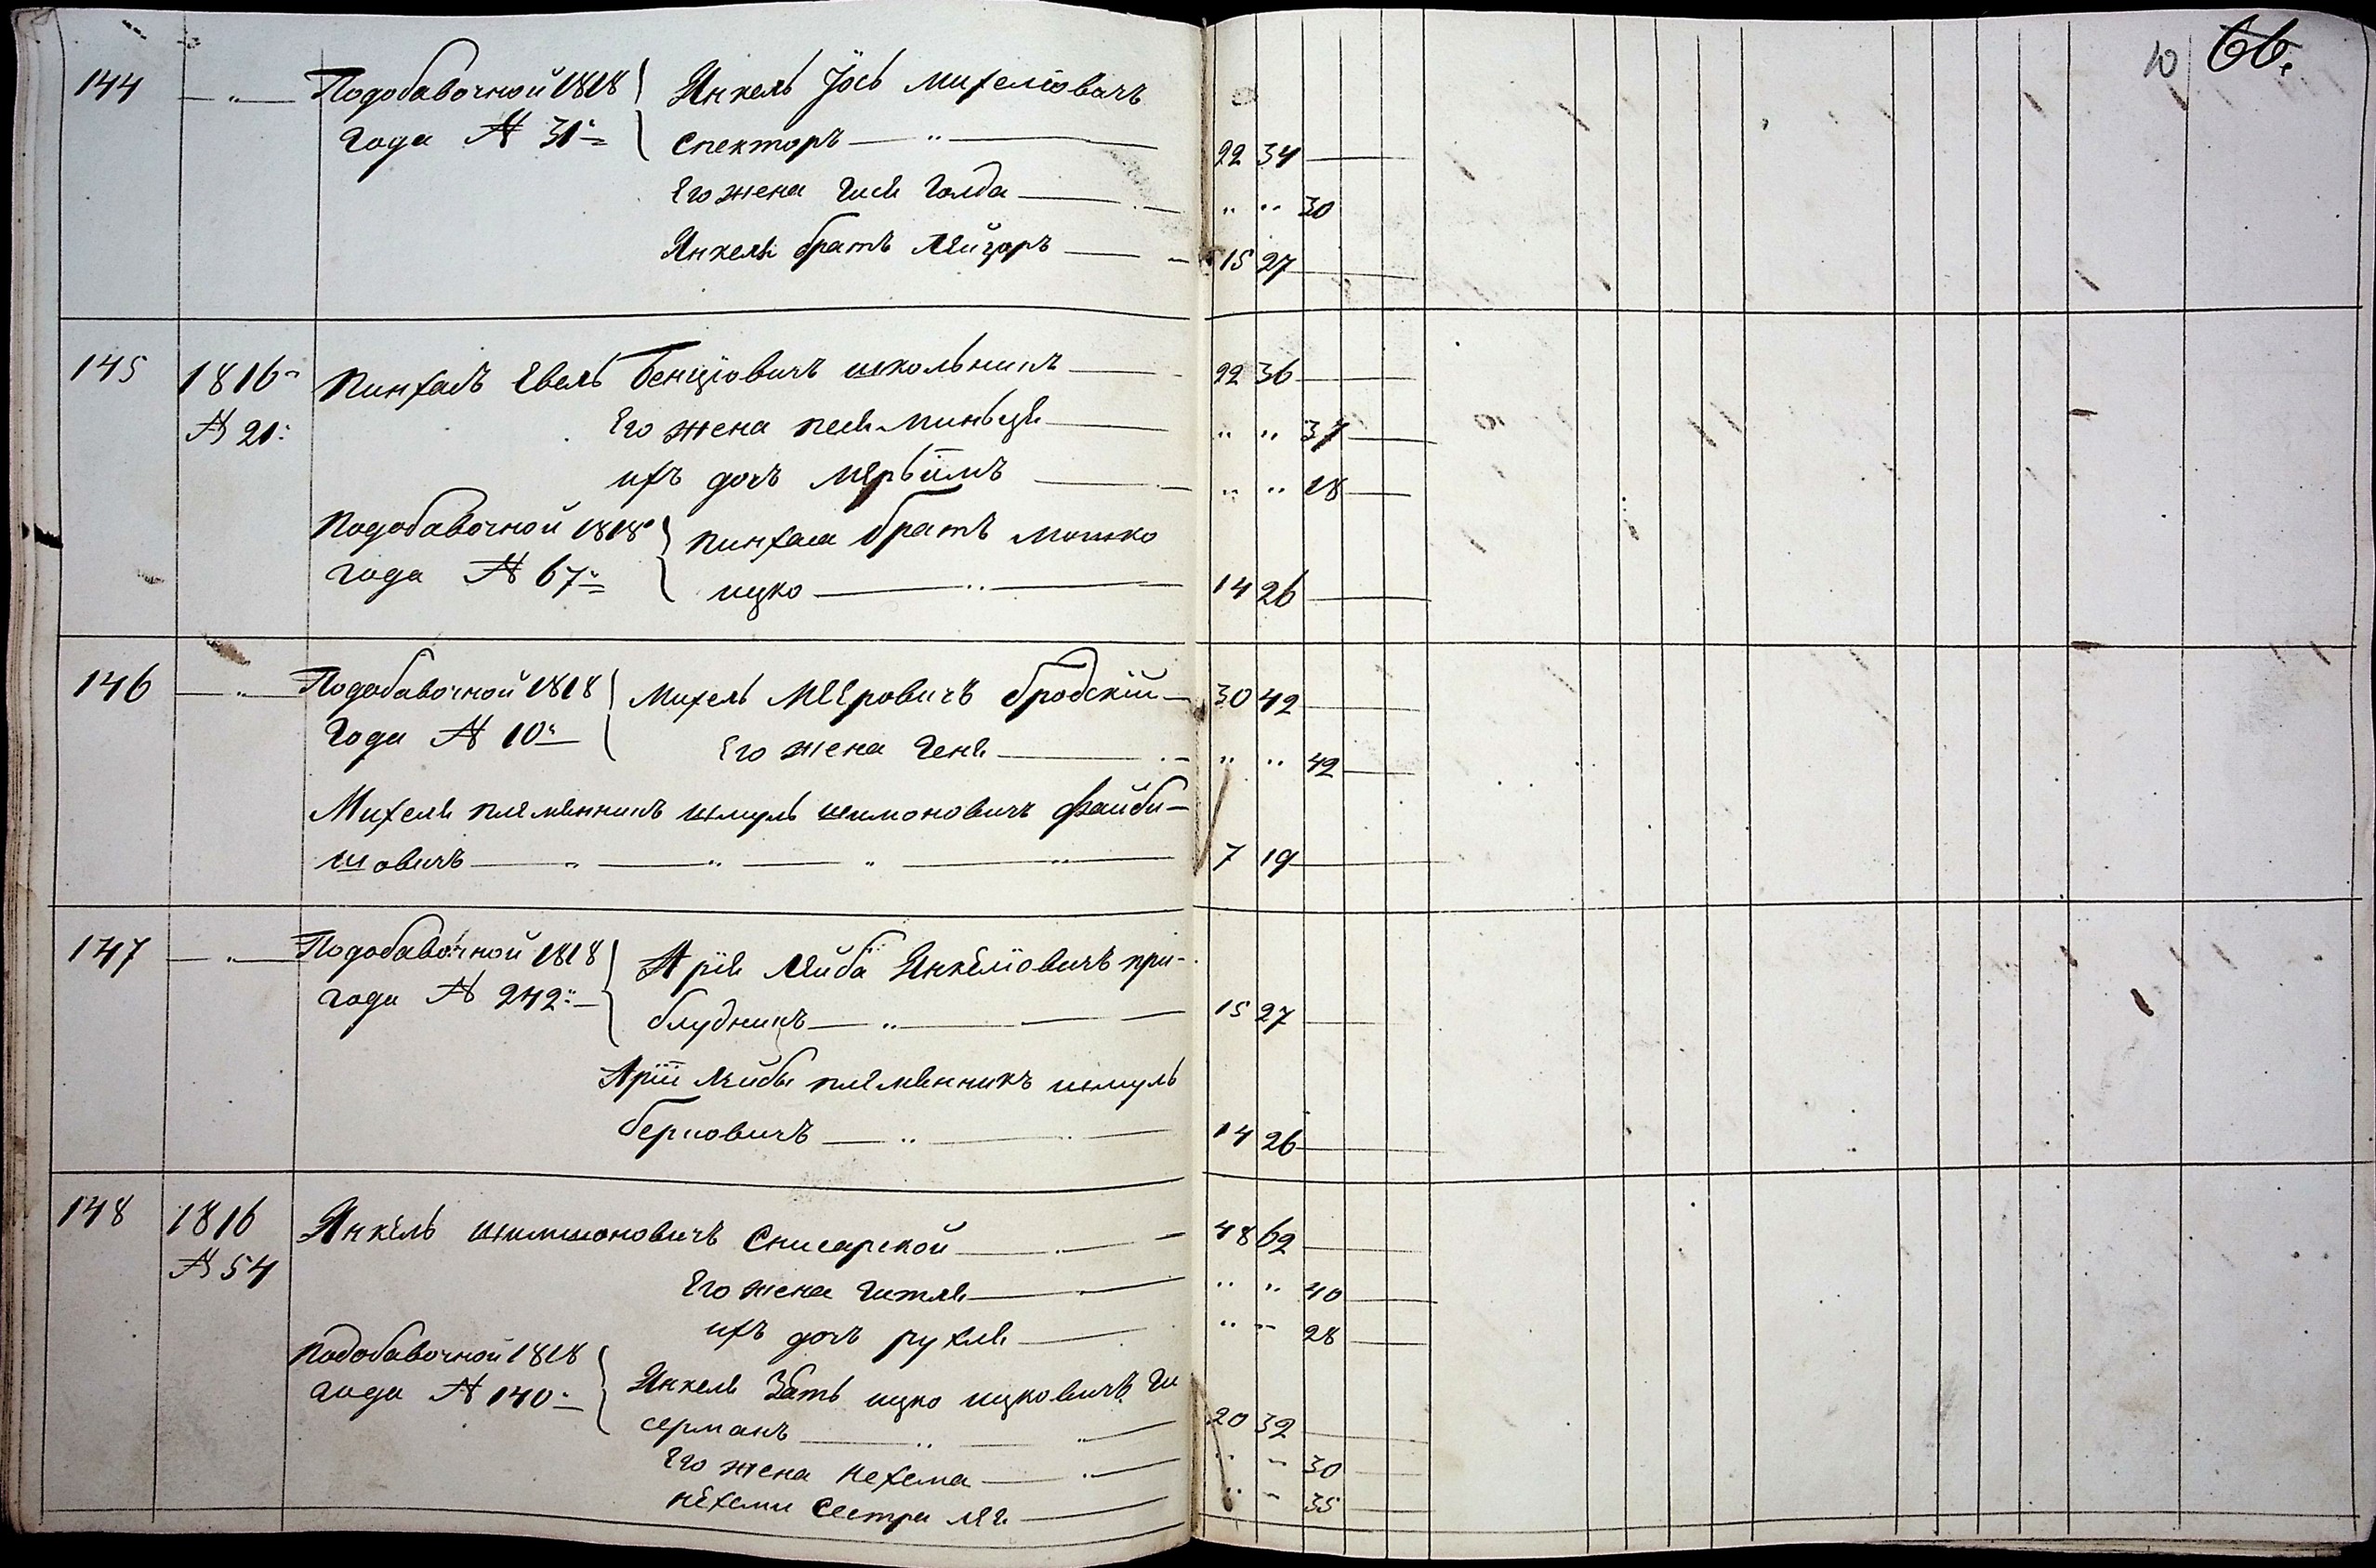 10 66.
144 — „ — Подобавочной 1818 Янкель Іось Михеліовичъ
года № 31 Спекторъ — „ — 22 34 —
Его жена Гися Голда — „ „ 30
Янкеля братъ Лейзоръ — 15 27 —
145 1816 Пинхасъ Евель Бенціовичъ школьникъ — 22 36 —
№ 21: Его жена Песя-Миньця — „ „ 37 —
ихъ дочь Мярьімъ — „ „ 18 —
Подобавочной 1818 Пинхаса братъ Мошко
года № 67 Ицко — „ — 14 26 —
146 — „ — Подобавочной 1818 Михель Мееровичъ Бродскій — 30 42 —
года № 10 Его жена Геня — „ „ 42 —
Михеля племянникъ Шмуль Шимоновичъ Файби-
шовичъ — „ — „ — „ — „ — 7 19 —
147 — „ — Подобавочной 1818 Арія Лейба Янкеліовичъ При-
года № 242 блудникъ — „ — 15 27 —
Аріи Лейбы племянникъ Шмуль
Берковичъ — „ — 14 26 —
148 1816 Янкель Шимшоновичъ Снисарской — 48 62 —
№ 54 Его жена Гитля — „ „ 40 —
ихъ дочь Рухля — „ „ 28 —
Подобавочной 1818 Янкеля Зять Ицко Ицковичъ Ги
года № 140 серманъ — „ — 20 32 —
Его жена Нехама — „ „ 30 —
Нехами Сестра Лея — „ „ 35 —